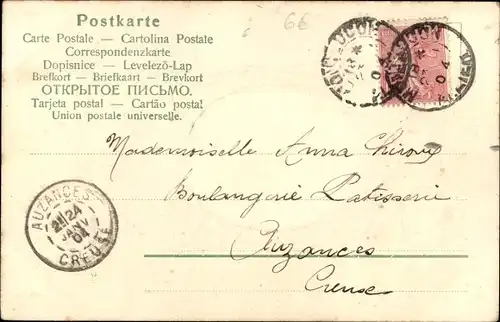 66
Postkarte
Carte Postale – Cartolina Postale
Correspondenzkarte
Dopisnice – Levelező-Lap
Brefkort – Briefkaart – Brevkort
ОТКРЫТОЕ ПИСЬМО.
Tarjeta postal – Cartão postal
Union postale universelle.
Mademoiselle Anna
Boulangerie Patisserie
Auzances
Creuse
AUZANCES
24
JANV
04
CREUSE